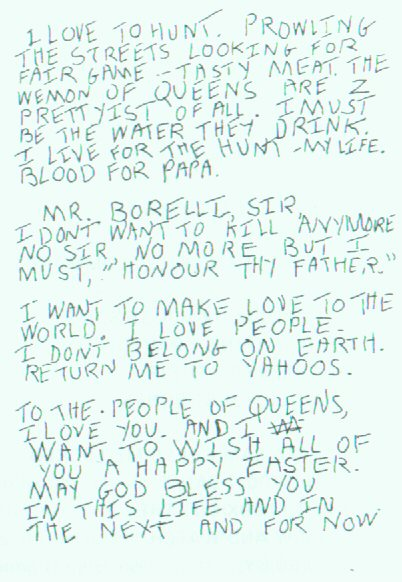 I LOVE TO HUNT. PROWLING
THE STREETS LOOKING FOR
FAIR GAME - TASTY MEAT. THE
WEMON OF QUEENS ARE Z
PRETTYIST OF ALL. I MUST
BE THE WATER THEY DRINK.
I LIVE FOR THE HUNT - MY LIFE.
BLOOD FOR PAPA.
MR. BORELLI, SIR,
I DONT WANT TO KILL ANYMORE
NO SIR, NO MORE BUT I
MUST, "HONOUR THY FATHER."
I WANT TO MAKE LOVE TO THE
WORLD. I LOVE PEOPLE.
I DON'T BELONG ON EARTH.
RETURN ME TO YAHOOS.
TO THE PEOPLE OF QUEENS,
I LOVE YOU. AND I
WANT TO WISH ALL OF
YOU A HAPPY EASTER.
MAY GOD BLESS YOU
IN THIS LIFE AND IN
THE NEXT AND FOR NOW